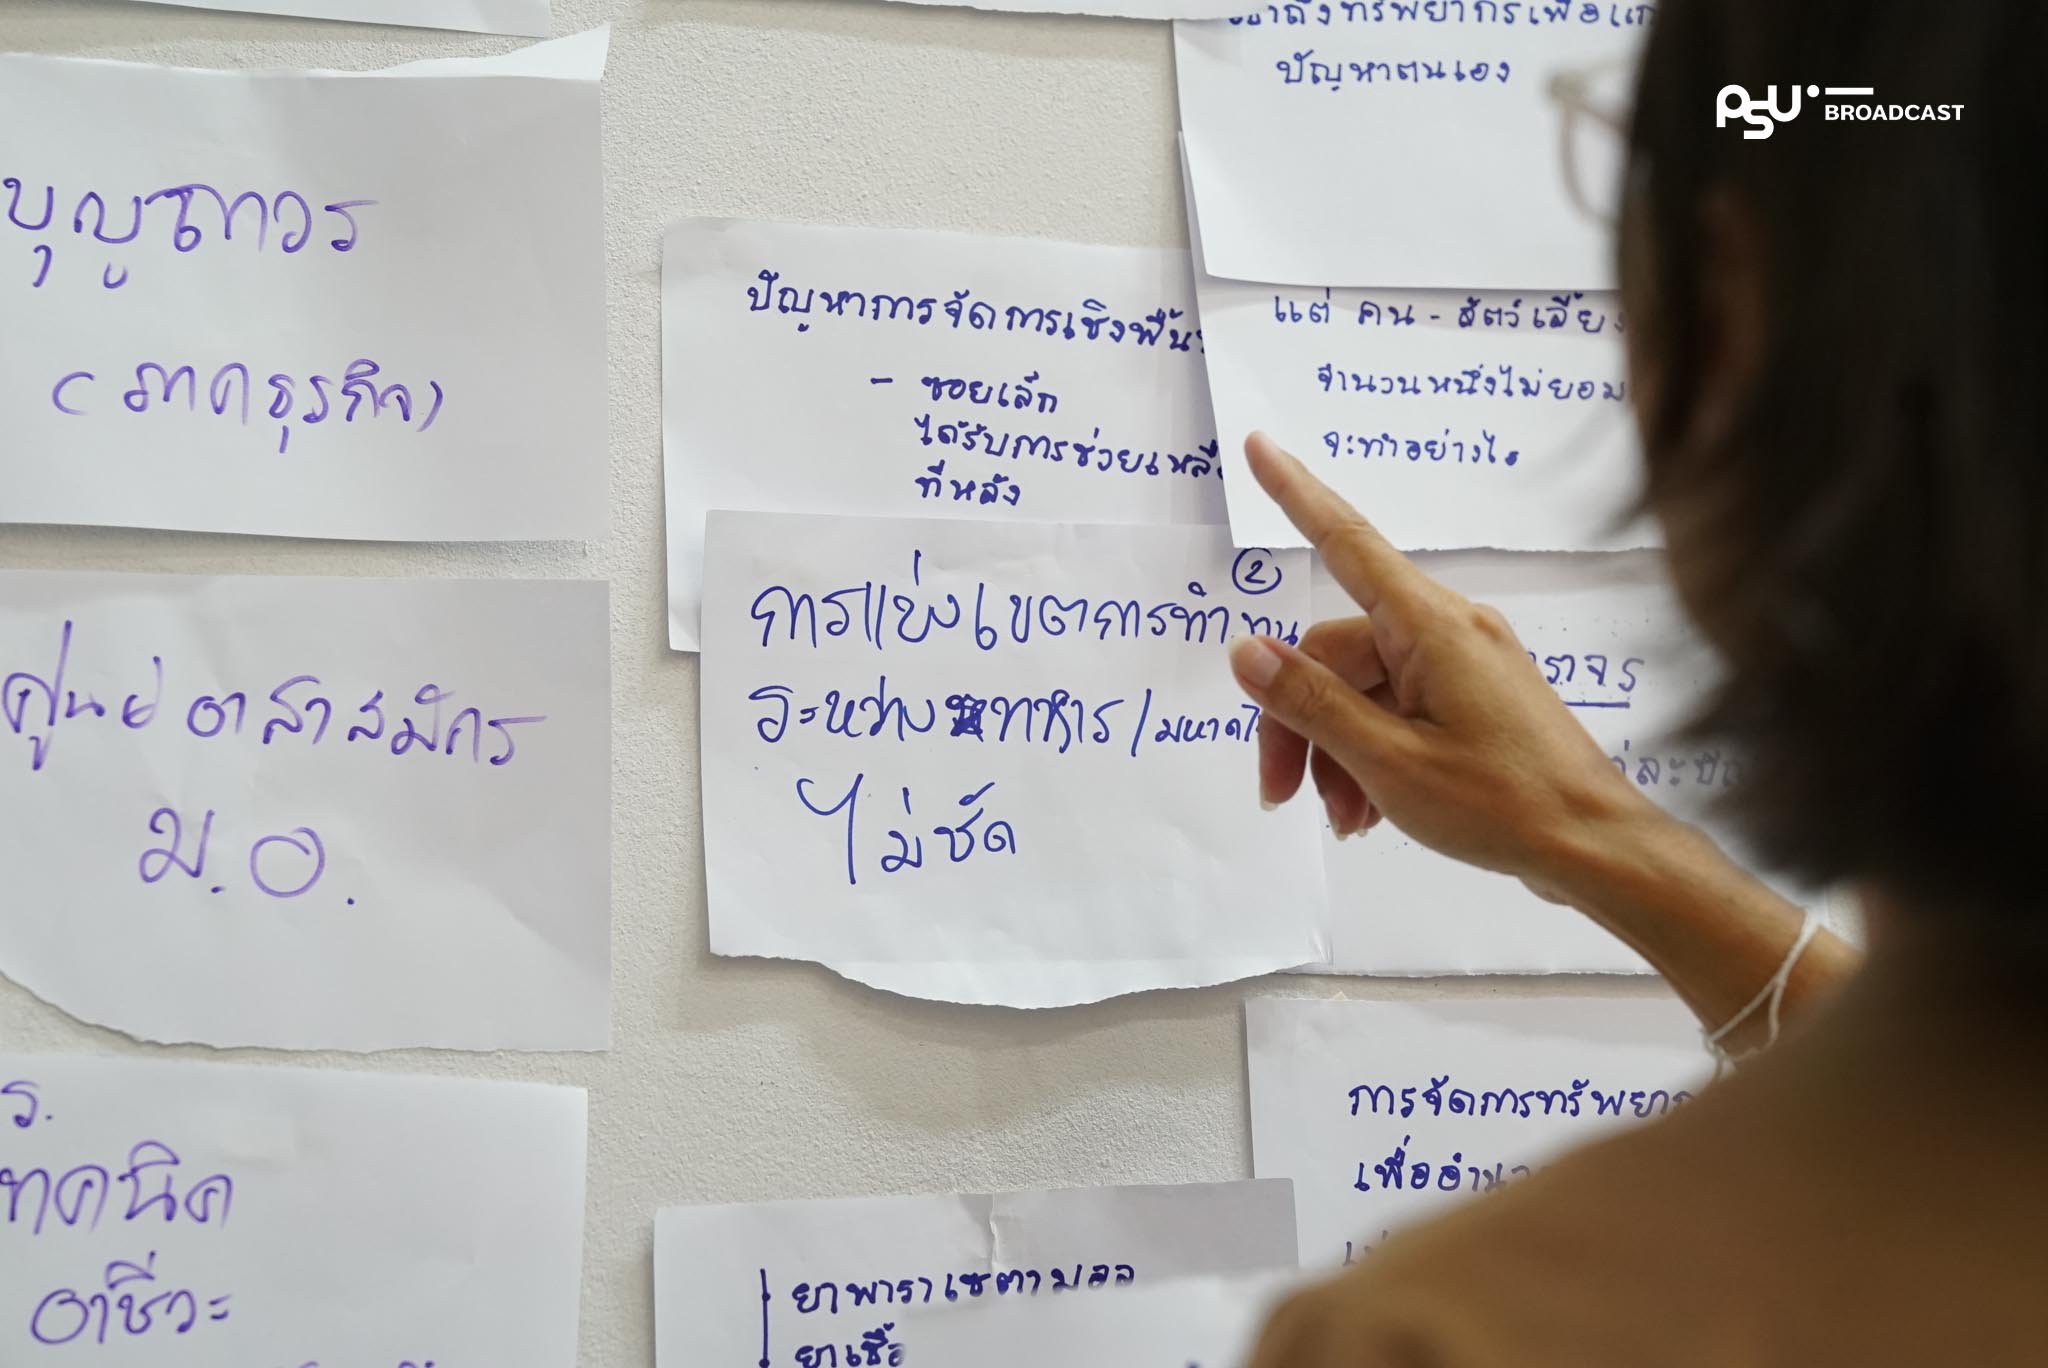 บุญถาวร
(ภาคธุรกิจ)
ศูนย์อาสาสมัคร
ม.อ.
ร.
เทคนิค
อาชีวะ
ปัญหาการจัดการเชิงพื้น
- ซอยเล็ก
ได้รับการช่วยเหลือ
ทีหลัง
②
การแบ่งเขตการทำงาน
ระหว่างทหาร/มหาดไ
ไม่ชัด
ยาพาราเซตามอล
ยาเชื้อ
ถึงทรัพยากรเพื่อแก้
ปัญหาตนเอง
แต่ คน - สัตว์เลี้ยง
จำนวนหนึ่งไม่ยอม
จะทำอย่างไร
ราจร
การจัดการทรัพยา
เพื่ออำนว
PSU BROADCAST